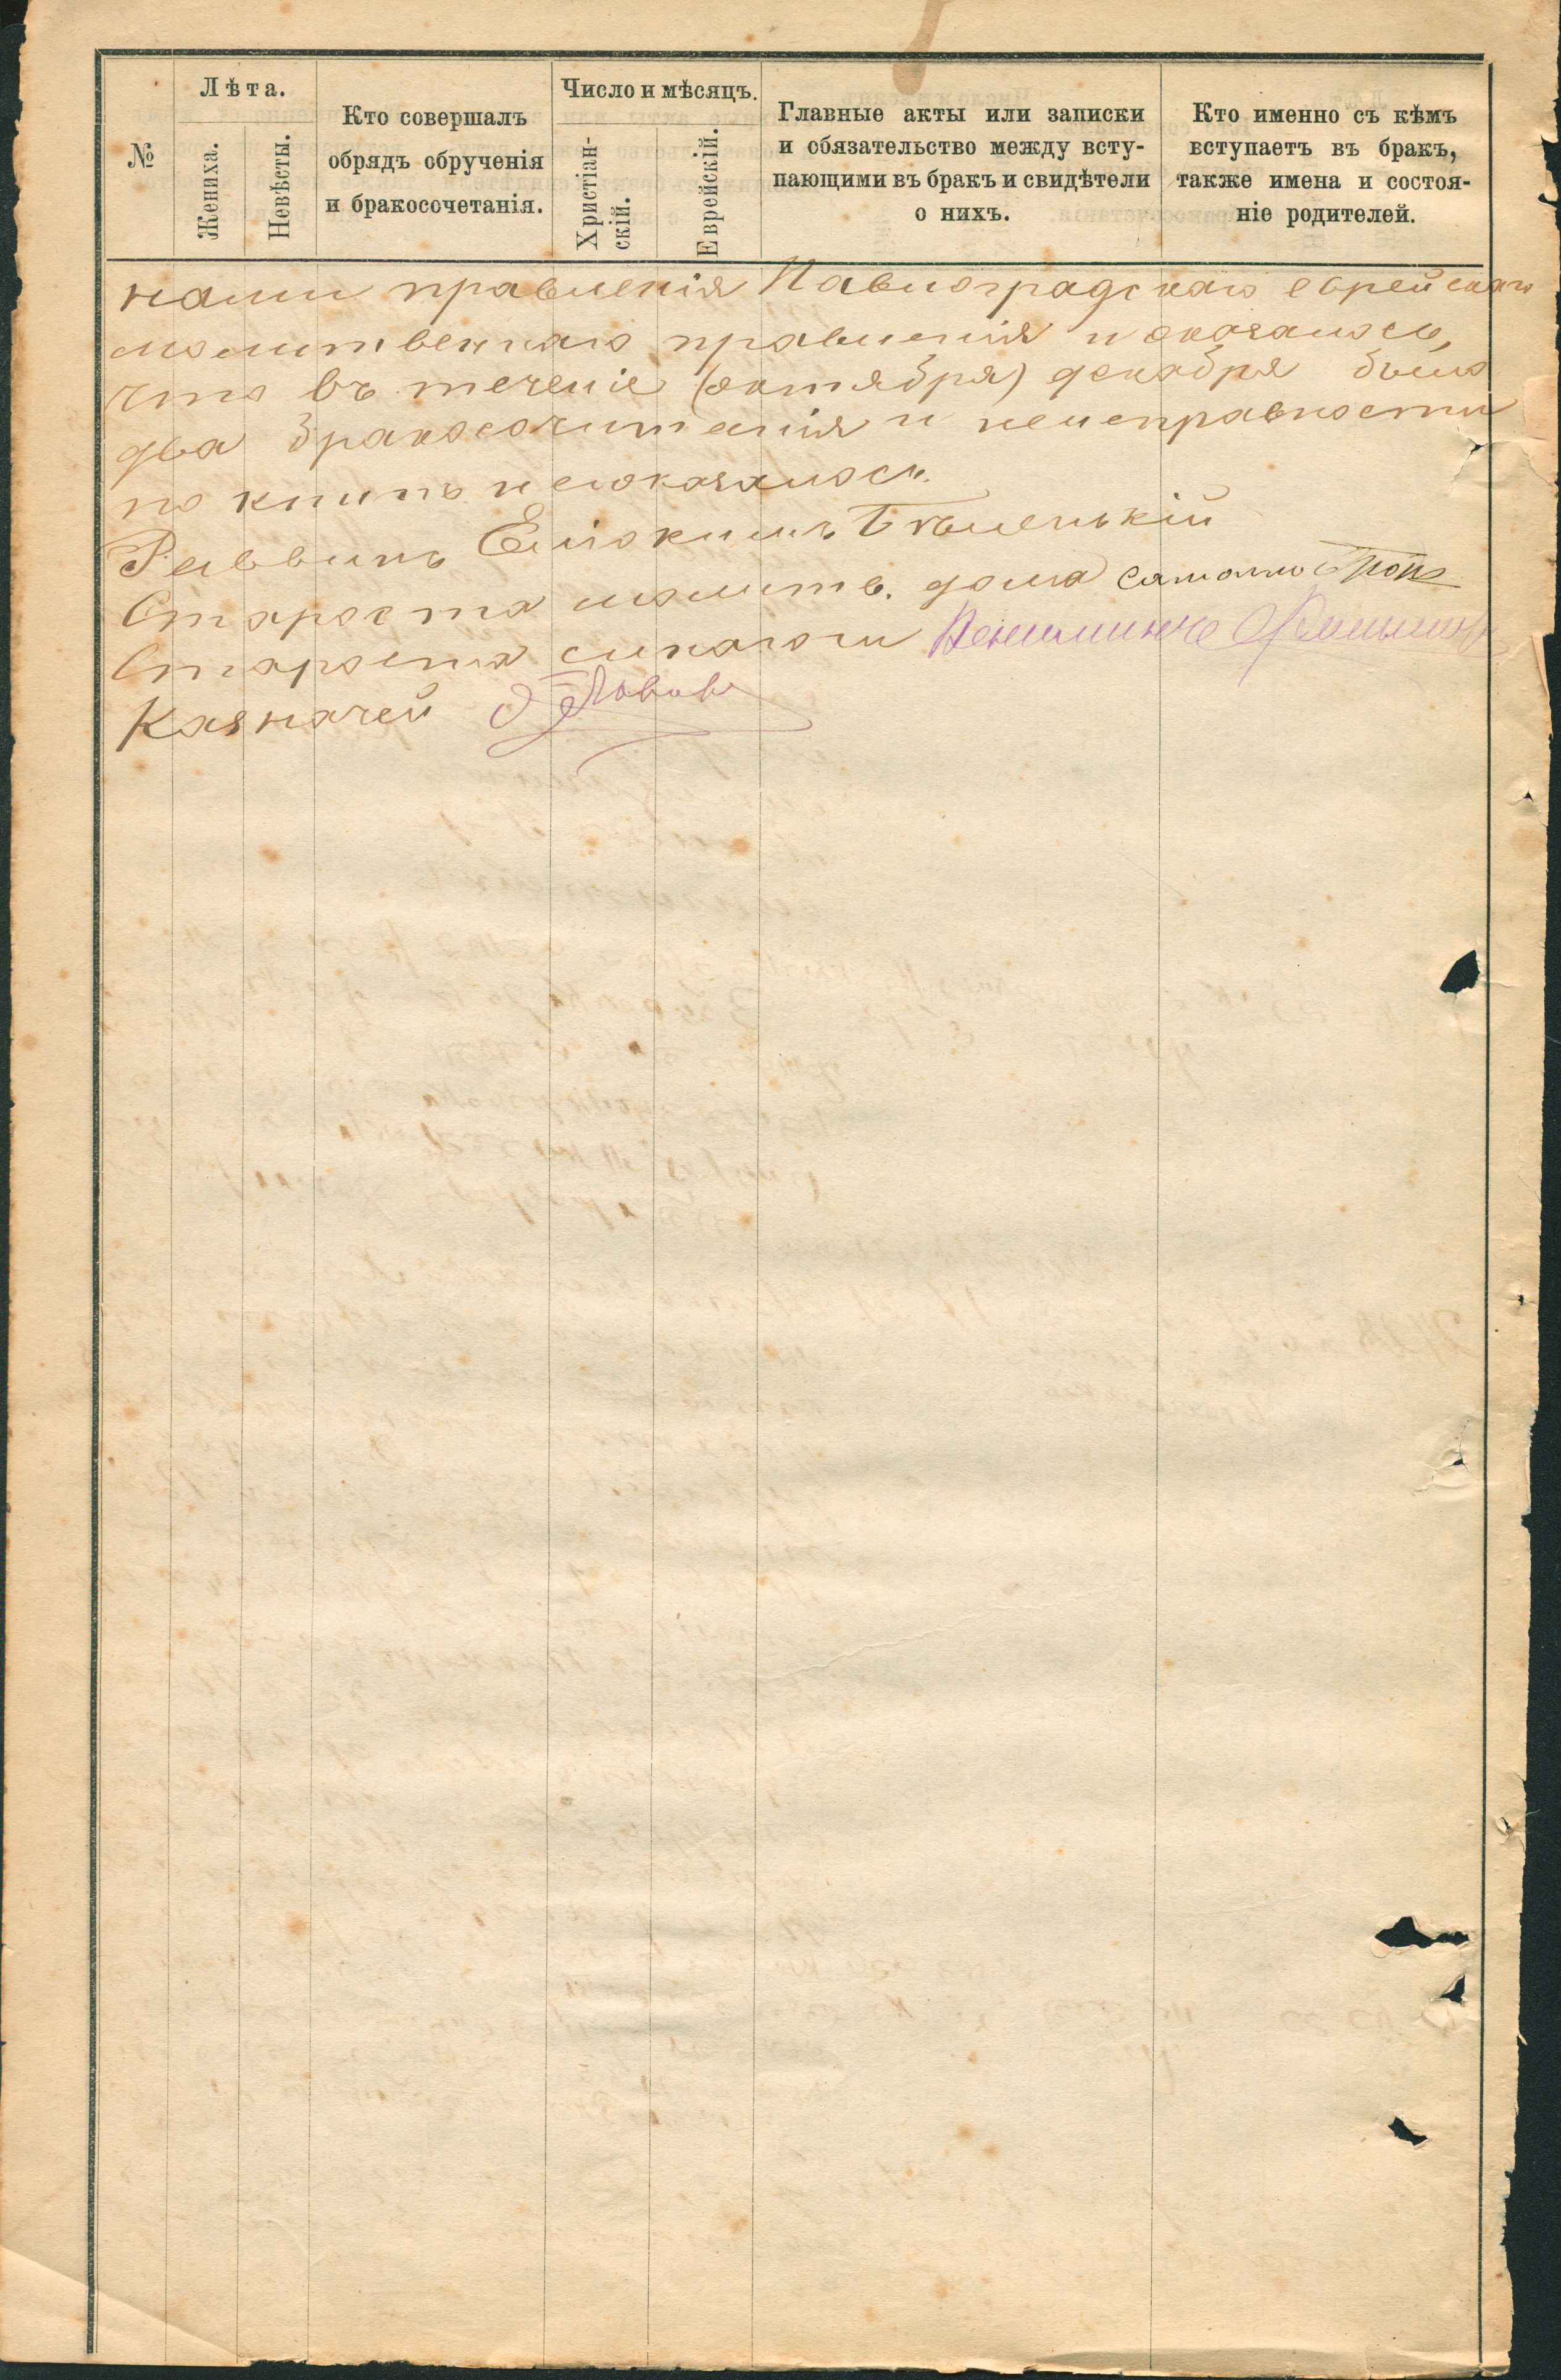 №
Лѣта.
Жениха.
Невѣсты.
Кто совершалъ
обрядъ обрученія
и бракосочетанія.
Число и мѣсяцъ.
Христіан-
скій.
Еврейскій.
Главные акты или записки
и обязательство между всту-
пающими въ бракъ и свидѣтели
о нихъ.
Кто именно съ кѣмъ
вступаетъ въ бракъ,
также имена и состоя-
ніе родителей.
нами правленія Павлоградскаго еврейскаго
молитвеннаго правленія и оказалось,
что въ теченіе (октября) декабря было
два бракосочитанія и неисправности
по книгѣ неоказалось.
Раввинъ Бѣленькій
Староста молитв. дома
Староста синагоги
Казначей